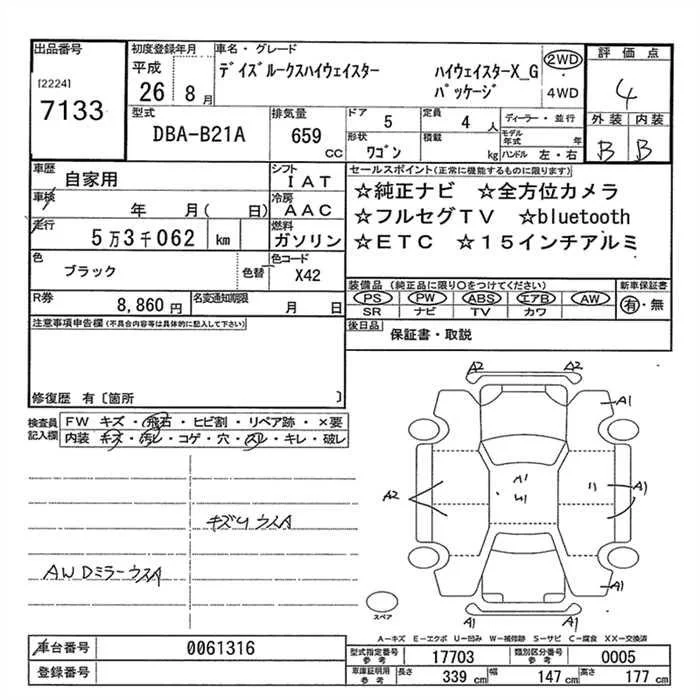 出品番号
[2224]
7133
初度登録年月
平成
26 8月
車名・グレード
デイズルークスハイウェイスター ハイウェイスターX_G
パッケージ
2WD
4WD
評価点
4
外装 内装
B B
型式
DBA-B21A
排気量
659
CC
ドア 5
定員 4 人
形状 ワゴン
積載 kg
ディーラー・並行
モデル年式 年
ハンドル 左・右
車歴
自家用
シフト
IAT
車検
年 月( 日)
冷房
AAC
走行
5万3千062 km
燃料
ガソリン
色
ブラック
色替
色コード
X42
R券
8,860円
名変通知期限
月 日
セールスポイント(正常に機能するものに限ります)
☆純正ナビ ☆全方位カメラ
☆フルセグTV ☆bluetooth
☆ETC ☆15インチアルミ
装備品 (純正品に限り〇をつけてください)
PS PW ABS エアB AW
SR ナビ TV カワ
新車保証書
有・無
後日品
保証書・取説
注意事項申告欄(不具合内容等は具体的に記入して下さい)
修復歴 有〔箇所 〕
検査員
記入欄
FW キズ・飛石・ヒビ割・リペア跡・×要
内装 キズ・汚レ・コゲ・穴・スレ・キレ・破レ
AWDミラーウスA
A2 A2
A1
A1
U1
A2
A1
A1
A1 A1
スペア
A-キズ E-エクボ U-凹み W-補修跡 S-サビ C-腐食 XX-交換済
車台番号
0061316
登録番号
型式指定番号
参考
17703
類別区分番号
参考
0005
車庫証明用
参考
長さ 339 cm 幅 147 cm 高さ 177 cm